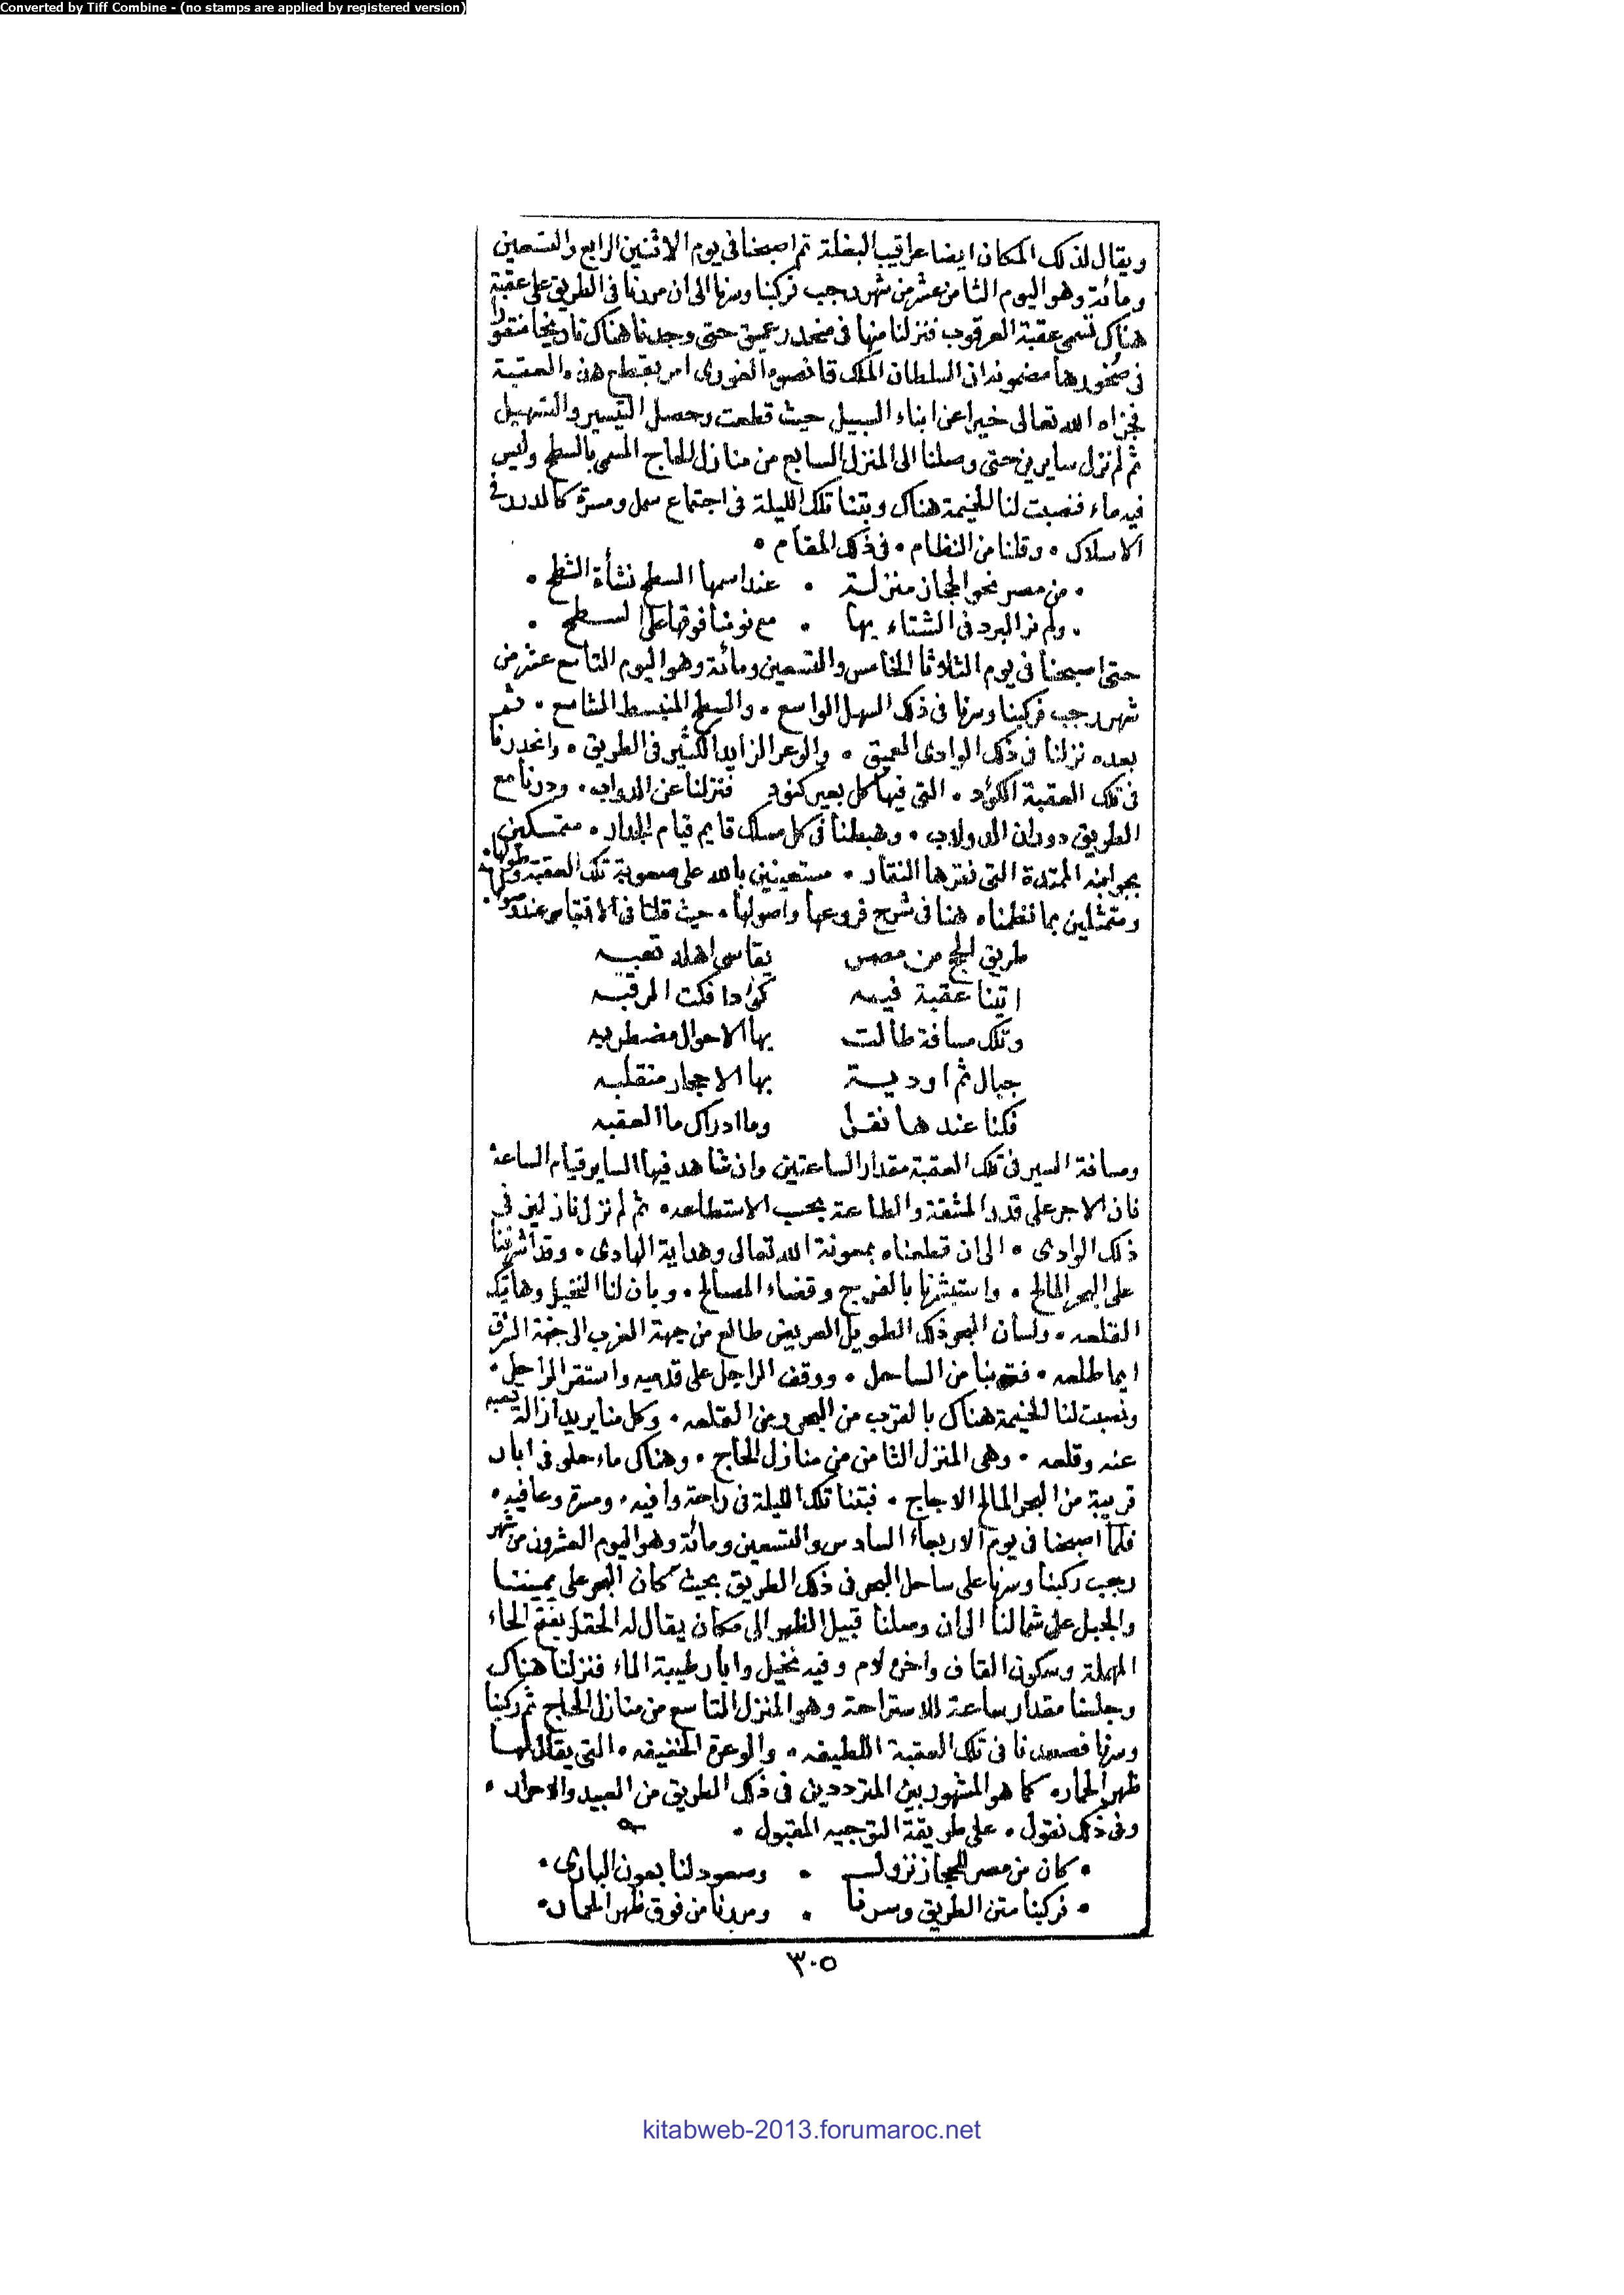 Converted by Tiff Combine - (no stamps are applied by registered version)
ويقال لذلك المكان ايضا عراقيب البغلة ثم اصبحنا في يوم الاثنين الرابع والتسعين
ومائة وهو اليوم الثامن عشر من شهر رجب فركبنا وسرنا الى ان مررنا في الطريق على عقبة
هناك تسمى عقبة العرقوب فنزلنا منها في منحدر عميق حتى وجدنا هناك تاريخا منقورا
في صخورها مضمونه ان السلطان الملك قانصوه الغورى امر بقطع هذه العقبة
فجزاه الله تعالى خيرا عن ابناء السبيل حيث قطعت وحصل التيسير والتسهيل
ثم لم نزل سايرين حتى وصلنا الى المنزل السابع من منازل الحاج المسمى بالسطح وليس
فيه ماء فنصبت لنا الخيمة هناك وبتنا تلك الليلة في اجتماع شمل ومسرة كالدرر في
الاسلاك ۰ وقلنا من النظام ۰ في ذلك المقام ۰
۰ من مصر نحو الحجاز منزلة ۰ عند اسمها السطح نشأة الشطح ۰
۰ ولم نر البرد في الشتاء بها ۰ مع نومنا فوقها على السطح ۰
حتى اصبحنا في يوم الثلاثا الخامس والتسعين ومائة وهو اليوم التاسع عشر من
شهر رجب فركبنا وسرنا في ذلك السهل الواسع ۰ والسطح المنبسط الشاسع ۰ ثم
بعده نزلنا في ذلك الوادى العميق ۰ والوعر الزايد الكثير في الطريق ۰ وانحدرنا
في تلك العقبة الكؤد ۰ التي فيها كل بعير كنود فنزلنا عن الدواب ۰ ودرنا مع
الطريق دوران الدولاب ۰ وهبطنا في كل مسلك قايم قيام الجدار ۰ متمسكين
بجوانبه الممتدة التي نقرها النقار ۰ مستعينين بالله على صعوبة تلك العقبة وطولها ۰
ومتمثلين بما نظمناه هنا في شرح فروعها واصولها ۰ حيث قلنا في الاقتباس عند
طريق الحج من مصر يقاسى اهله تعبه
اتينا عقبة فيه كؤادا فكت الرقبه
وتلك مسافة طالت بها الاحوال مضطربه
جبال ثم اودية بها الاحجار منقلبه
فكنا عندها نقرا وما ادراك ما العقبه
ومسافة السير في تلك العقبة مقدار الساعتين وان شاهد فيها الساير قيام الساعة
فان الاجر على قدر المشقة والطاعة بحسب الاستطاعه ۰ ثم لم نزل نازلين في
ذلك الوادى ۰ الى ان قطعناه بمعونة الله تعالى وهداية الهادى ۰ وقد اشرفنا
على البحر المالح ۰ واستبشرنا بالفرج وقضاء المصالح ۰ وبان لنا النخيل وهاتيك
القلعه ۰ ولسان البحر ذلك الطويل العريض طالع من جهة الغرب الى جهة الشرق
ايما طلعه ۰ فتقربنا من الساحل ۰ ووقف الراجل على قدميه واستقر الراحل ۰
ونصبت لنا الخيمة هناك بالقرب من البحر ومن القلعه ۰ وكل منا يريد ازالة تعبه
عنه وقلعه ۰ وهي المنزل الثامن من منازل الحاج ۰ وهناك ماء حلو في ابار
قريبة من البحر المالح الاجاج ۰ فبتنا تلك الليلة في راحة وافيه ۰ ومسرة وعافيه ۰
فلما اصبحنا في يوم الاربعاء السادس والتسعين ومائة وهو اليوم العشرون من شهر
رجب ركبنا وسرنا على ساحل البحر في ذلك الطريق بحيث كان البحر على يميننا
والجبل على شمالنا الى ان وصلنا قبيل الظهر الى مكان يقال له الحقل بفتح الحاء
المهملة وسكون القاف واخره لام وفيه نخيل وابار طيبة الماء فنزلنا هناك
وجلسنا مقدار ساعة للاستراحة وهو المنزل التاسع من منازل الحاج ثم ركبنا
وسرنا فصعدنا في تلك العقبة اللطيفه ۰ والوعرة الخفيفه ۰ التي يقال لها
ظهر الحمار ۰ كما هو المشهور بين المترددين في ذلك الطريق من العبيد والاحرار ۰
وفي ذلك نقول ۰ على طريقة التوجيه المقبول ۰
۰ كان من مصر للحجاز نزول ۰ وصعود لنا بعون البارى ۰
۰ فركبنا متن الطريق وسرنا ۰ ومررنا من فوق ظهر الحمار ۰
٣٠٥
kitabweb-2013.forumaroc.net